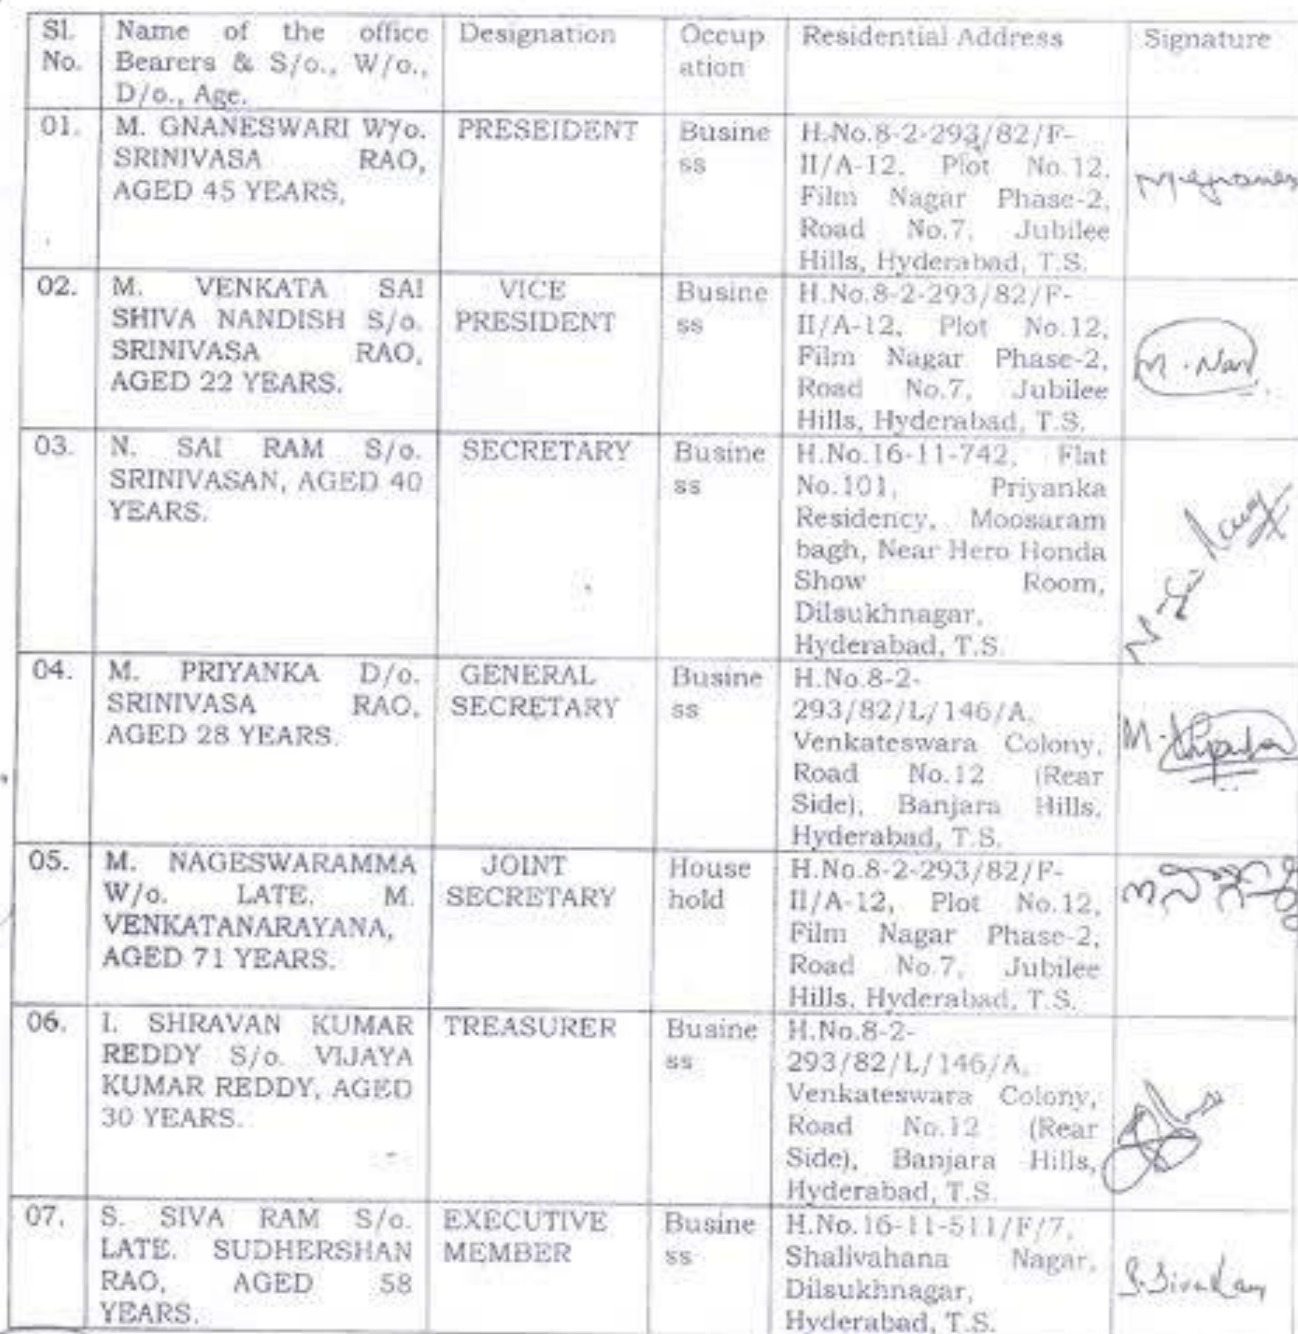 Sl. No.
Name of the office Bearers & S/o., W/o., D/o., Age.
Designation
Occup ation
Residential Address
Signature
01.
M. GNANESWARI W/o.
SRINIVASA RAO,
AGED 45 YEARS,
PRESEIDENT
Busine
ss
H.No.8-2-293/82/F-
II/A-12, Plot No.12,
Film Nagar Phase-2,
Road No.7, Jubilee
Hills, Hyderabad, T.S.
02.
M. VENKATA SAI
SHIVA NANDISH S/o.
SRINIVASA RAO,
AGED 22 YEARS,
VICE
PRESIDENT
Busine
ss
H.No.8-2-293/82/F-
II/A-12, Plot No.12,
Film Nagar Phase-2,
Road No.7, Jubilee
Hills, Hyderabad, T.S.
M. Nan
03.
N. SAI RAM S/o.
SRINIVASAN, AGED 40
YEARS.
SECRETARY
Busine
ss
H.No.16-11-742, Flat
No.101, Priyanka
Residency, Moosaram
bagh, Near Hero Honda
Show Room,
Dilsukhnagar,
Hyderabad, T.S.
04.
M. PRIYANKA D/o.
SRINIVASA RAO,
AGED 28 YEARS.
GENERAL
SECRETARY
Busine
ss
H.No.8-2-
293/82/L/146/A,
Venkateswara Colony,
Road No.12 (Rear
Side), Banjara Hills,
Hyderabad, T.S.
05.
M. NAGESWARAMMA
W/o. LATE. M.
VENKATANARAYANA,
AGED 71 YEARS.
JOINT
SECRETARY
House
hold
H.No.8-2-293/82/F-
II/A-12, Plot No.12,
Film Nagar Phase-2,
Road No.7, Jubilee
Hills, Hyderabad, T.S.
06.
I. SHRAVAN KUMAR
REDDY S/o. VIJAYA
KUMAR REDDY, AGED
30 YEARS.
TREASURER
Busine
ss
H.No.8-2-
293/82/L/146/A,
Venkateswara Colony,
Road No.12 (Rear
Side), Banjara Hills,
Hyderabad, T.S.
07.
S. SIVA RAM S/o.
LATE. SUDHERSHAN
RAO, AGED 58
YEARS.
EXECUTIVE
MEMBER
Busine
ss
H.No.16-11-511/F/7,
Shalivahana Nagar,
Dilsukhnagar,
Hyderabad, T.S.
S. Siva Ram